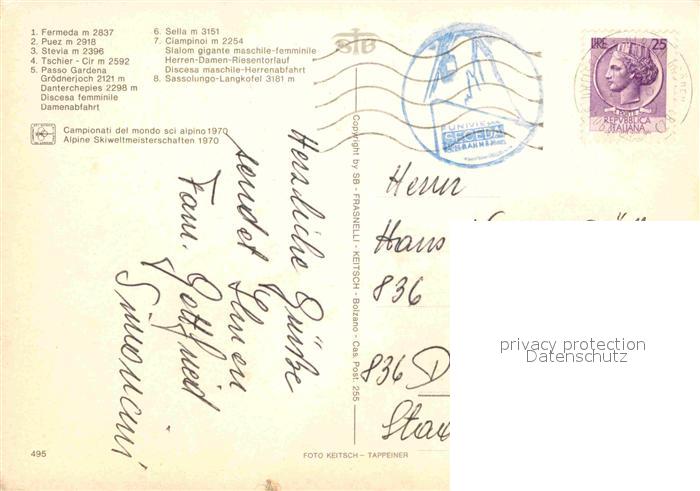 1. Fermeda m 2837
2. Puez m 2918
3. Stevia m 2396
4. Tschier - Cir m 2592
5. Passo Gardena
Grödnerjoch 2121 m
Danterchepies 2298 m
Discesa femminile
Damenabfahrt
6. Sella m 3151
7. Ciampinoi m 2254
Slalom gigante maschile-femminile
Herren-Damen-Riesentorlauf
Discesa maschile-Herrenabfahrt
8. Sassolungo-Langkofel 3181 m
Campionati del mondo sci alpino 1970
Alpine Skiweltmeisterschaften 1970
LIRE 25
REPVBBLICA
ITALIANA
FUNIVIE
SECEDA
Herzliche Grüße
sendet Ihnen
Fam. Gottfried
Copyright by SB - FRASNELLI - KEITSCH - Bolzano - Cas. Post. 255
Herrn
Hans
836
836 D
privacy protection
Datenschutz
495
FOTO KEITSCH - TAPPEINER